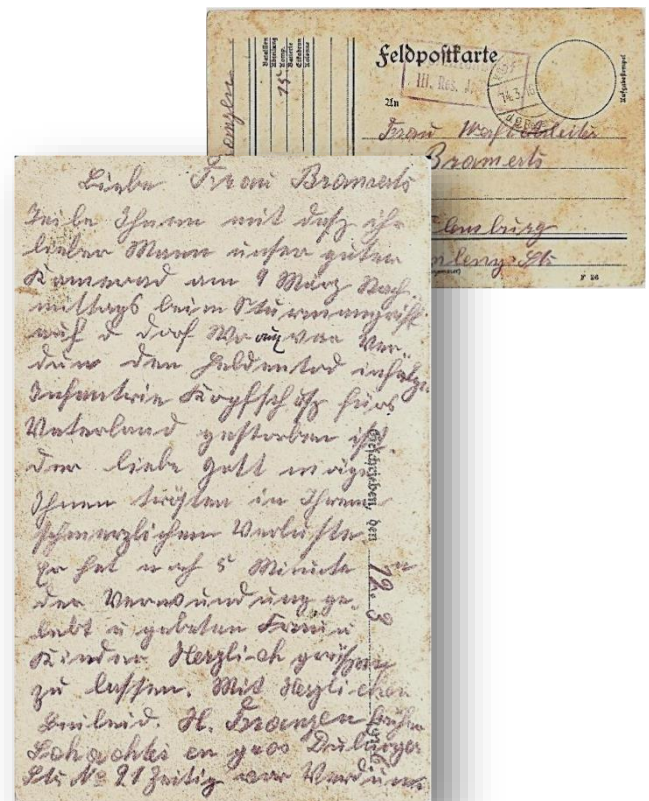 Feldpostkarte
Bataillon
Abteilung
Komp.
Batterie
Eskadron
Kolonne
15.
III. Res.
14.3.16
An
Frau
Bramerts
Aufgabestempel
F 26
Liebe Frau Bramerts
Teile Ihnen mit daß ihr
lieber Mann unser guter
Kamerad am 9 März Nach-
mittags beim Sturmangriff
auf d Dorf vor Ver
dun den Heldentod infolge
Infantrie Kopfschuß fürs
Vaterland gestorben ist
Der liebe Gott möge
Ihnen trösten in Ihrem
schmerzlichen Verluste.
Er hat noch 5 Minute n
der Verwundung ge-
lebt u gebeten Frau u
Kinder Herzlich grüßen
zu lassen. Mit Herzlichen
Beileid. H. Franzen früher
en gros
Str No 91 Zeitig vor Verdun
Geschrieben, den 12.3